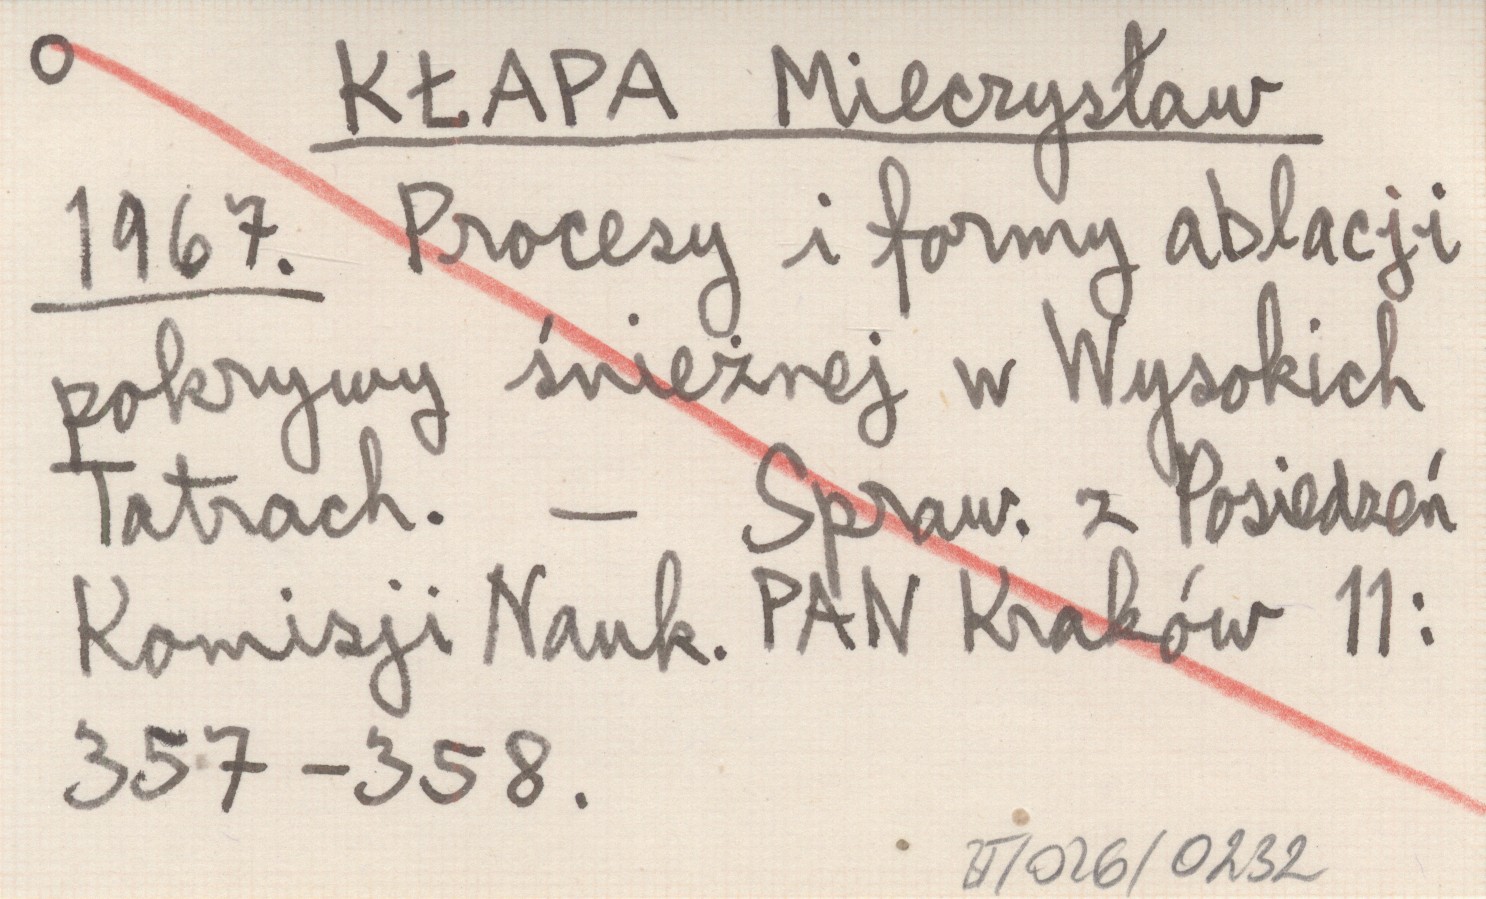 KŁAPA Mieczysław
1967. Procesy i formy ablacji
pokrywy śnieżnej w Wysokich
Tatrach. — Spraw. z Posiedzeń
Komisji Nauk. PAN Kraków 11:
357-358.
/026/0232